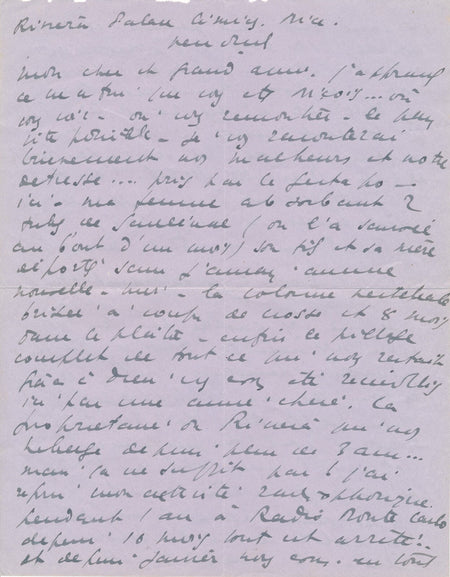 Riviera Palace Cimiez. Nice.
vendredi
mon cher et grand ami. j'apprends
ce matin que vous êtes ici... où
vous voir - où vous rencontrer - le plus
vite possible - je vous raconterai
brièvement nos malheurs et notre
détresse... pris par la gestapo -
ici - ma femme absorbant 2
tubes de Gardénal (on l'a sauvée
au bout d'un mois) son fils et sa mère
déportés sans jamais aucune
nouvelle - moi - la colonne vertébrale
brisée à coups de crosse et 8 mois
dans le plâtre - enfin le pillage
complet de tout ce qui nous restait
grâce à Dieu nous avons été recueillis
ici par une amie chère. La
propriétaire du Riviera qui nous
héberge depuis près de 3 ans...
mais ça ne suffit pas! j'ai
repris mon activité radiophonique
pendant 1 an à Radio Monte Carlo
depuis 10 mois tout est arrêté.
et depuis janvier nous avons en tout